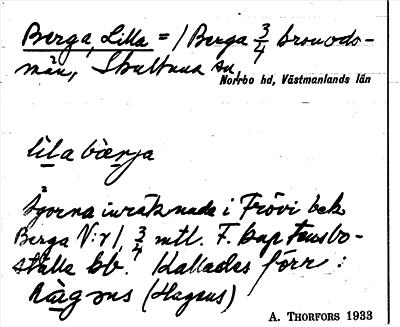 Berga, Lilla = / Berga 3/4 kronodo-
män, Skultuna sn,
Norrbo hd, Västmanlands län
lila bærja
Ägorna inräknade i Frövi bek
Berga N:r 1, 3/4 mtl. F. kaptensbo-
ställe bb. Kallades förr:
Hagens (Hagens)
A. THORFORS 1933